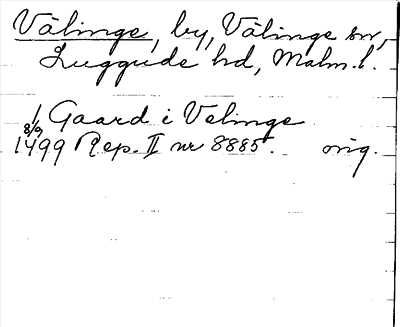 Välinge, by, Välinge sn,
Luggude hd, Malm. l.
1 Gaard i Velinge
8/9
1499 Rep. II nr 8885. orig.